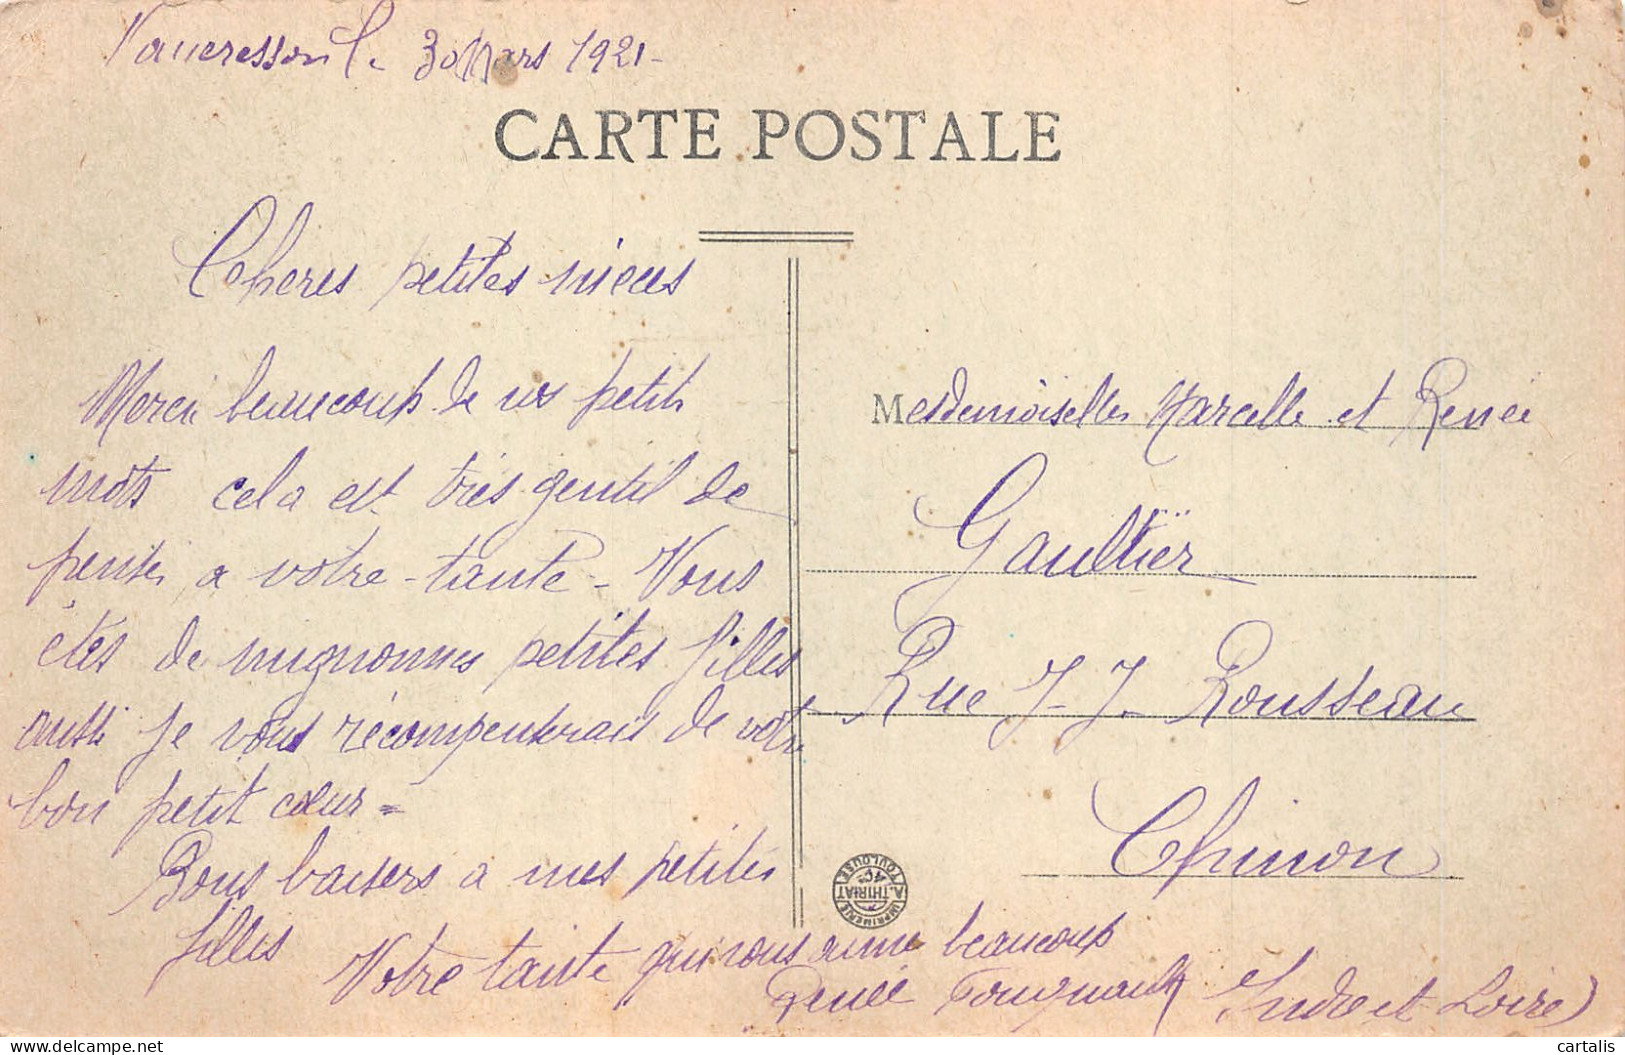 Vaucresson le 30 Mars 1921-
CARTE POSTALE
Cheres petites nièces
Merci beaucoup de vos petits
mots cela est très gentil de
penser a votre tante - Vous
êtes de mignonnes petites filles
aussi je vous récompenserais de votre
bon petit cœur =
Bons baisers a mes petites
filles
Votre tante qui vous aime beaucoup
Renée
Mesdemoiselles Marcelle et Renée
Gaultier
Rue J-J. Rousseau
Chinon
(Indre et Loire)
IMPRIMERIE A. THIRIAT & Cie TOULOUSE
cartalis
cartalis.delcampe.net